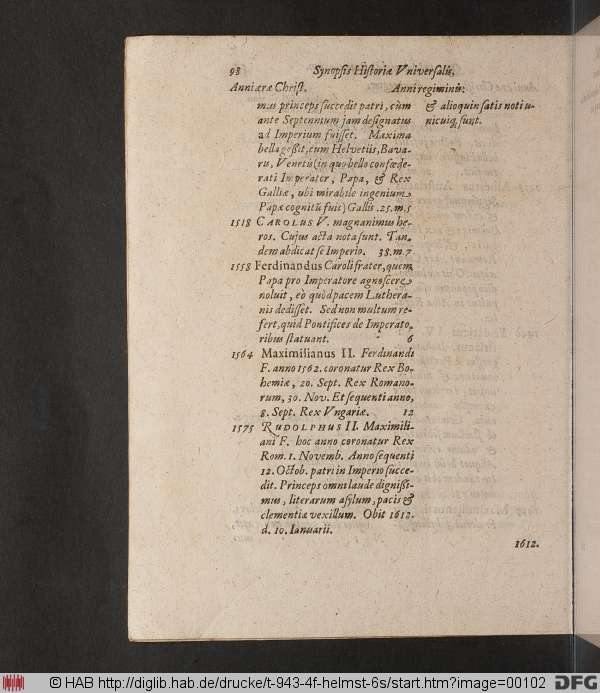 98 Synopsis Historiæ Vniversalis.
Anni æræ Christ. Anni regiminis.
mus princeps succedit patri, cùm
ante Septennium jam designatus
ad Imperium fuisset. Maxima
bella gessit, cum Helvetiis, Bava-
ris, Venetis (in quo bello confœde-
rati Imperator, Papa, & Rex
Galliæ, ubi mirabile ingenium
Papæ cognitũ fuit) Gallis. 25. m. 5
& alioquin satis noti u-
nicuiq, sunt.
1518 CAROLUS V. magnanimus he-
ros. Cujus acta nota sunt. Tan-
dem abdicat se Imperio. 38. m. 7
1558 Ferdinandus Caroli frater, quem
Papa pro Imperatore agnoscere
noluit, eò quòd pacem Luthera-
nis dedisset. Sed non multum re-
fert, quid Pontifices de Imperato,
ribus statuant. 6
1564 Maximilianus II. Ferdinandi
F. anno 1562. coronatur Rex Bo-
hemiæ, 20. Sept. Rex Romano-
rum, 30. Nov. Et sequenti anno,
8. Sept. Rex Vngariæ. 12
1575 RUDOLPHUS II. Maximili-
ani F. hoc anno coronatur Rex
Rom. 1. Novemb. Anno sequenti
12. Octob. patri in Imperio succe-
dit. Princeps omni laude dignissi-
mus, literarum asylum, pacis &
clementiæ vexillum. Obit 1612.
d. 10. Ianuarii.
1612.
© HAB http://diglib.hab.de/drucke/t-943-4f-helmst-6s/start.htm?image=00102
DFG